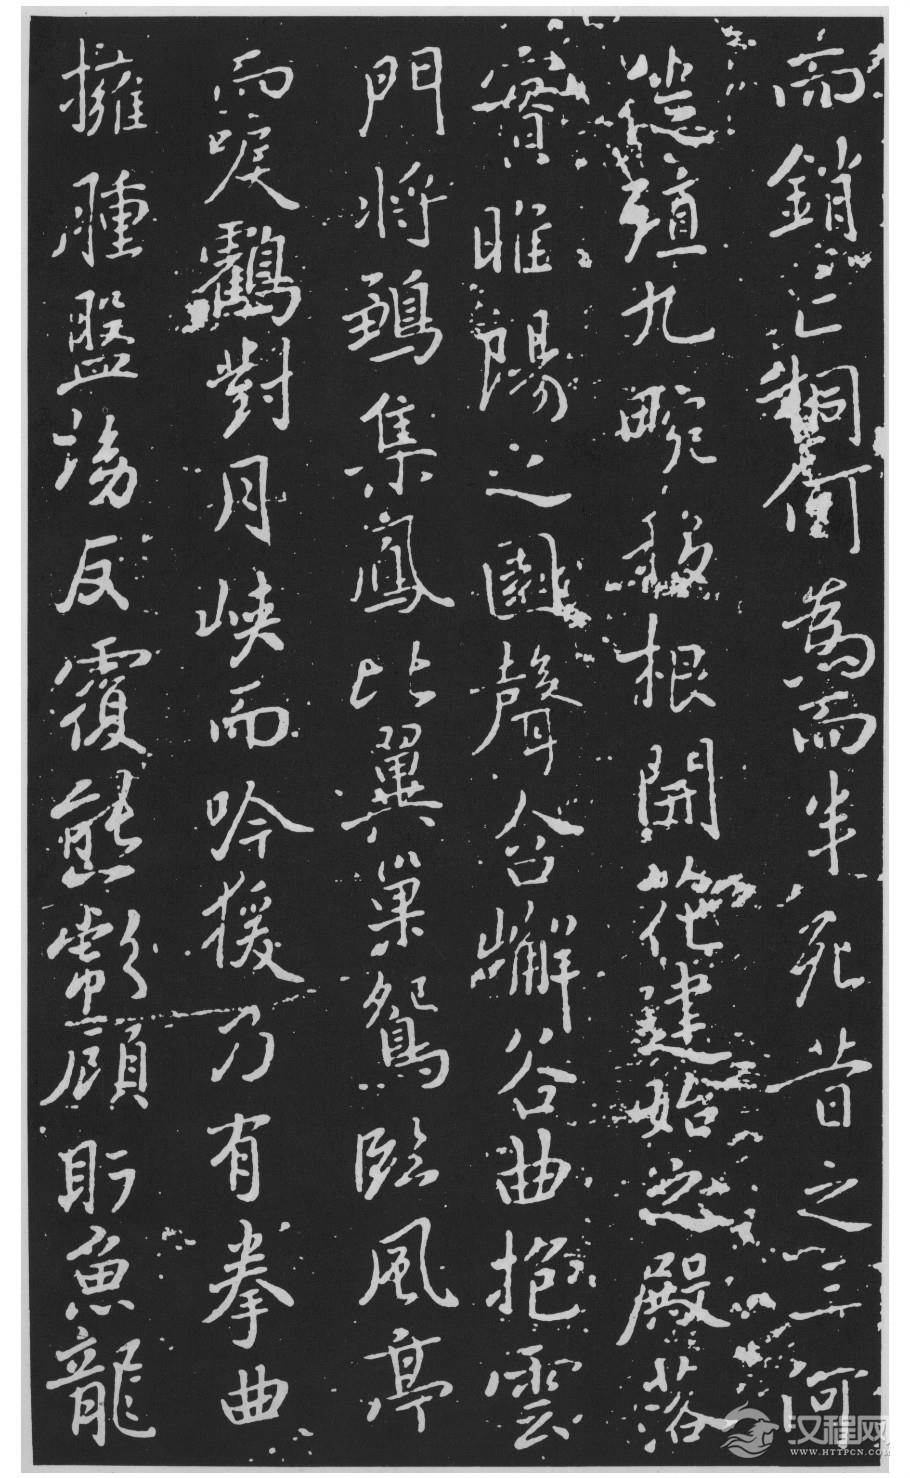 而銷亡桐何為而半死昔之三河
徙殖九畹移根開花建始之殿落
實睢陽之園聲含嶰谷曲抱雲
門將鶵集鳳比翼巢鴛臨風亭
而唳鸖對月峽而吟猨乃有拳曲
擁腫盤坳反覆熊彪顧盻魚龍
汉程网
WWW.HTTPCN.COM